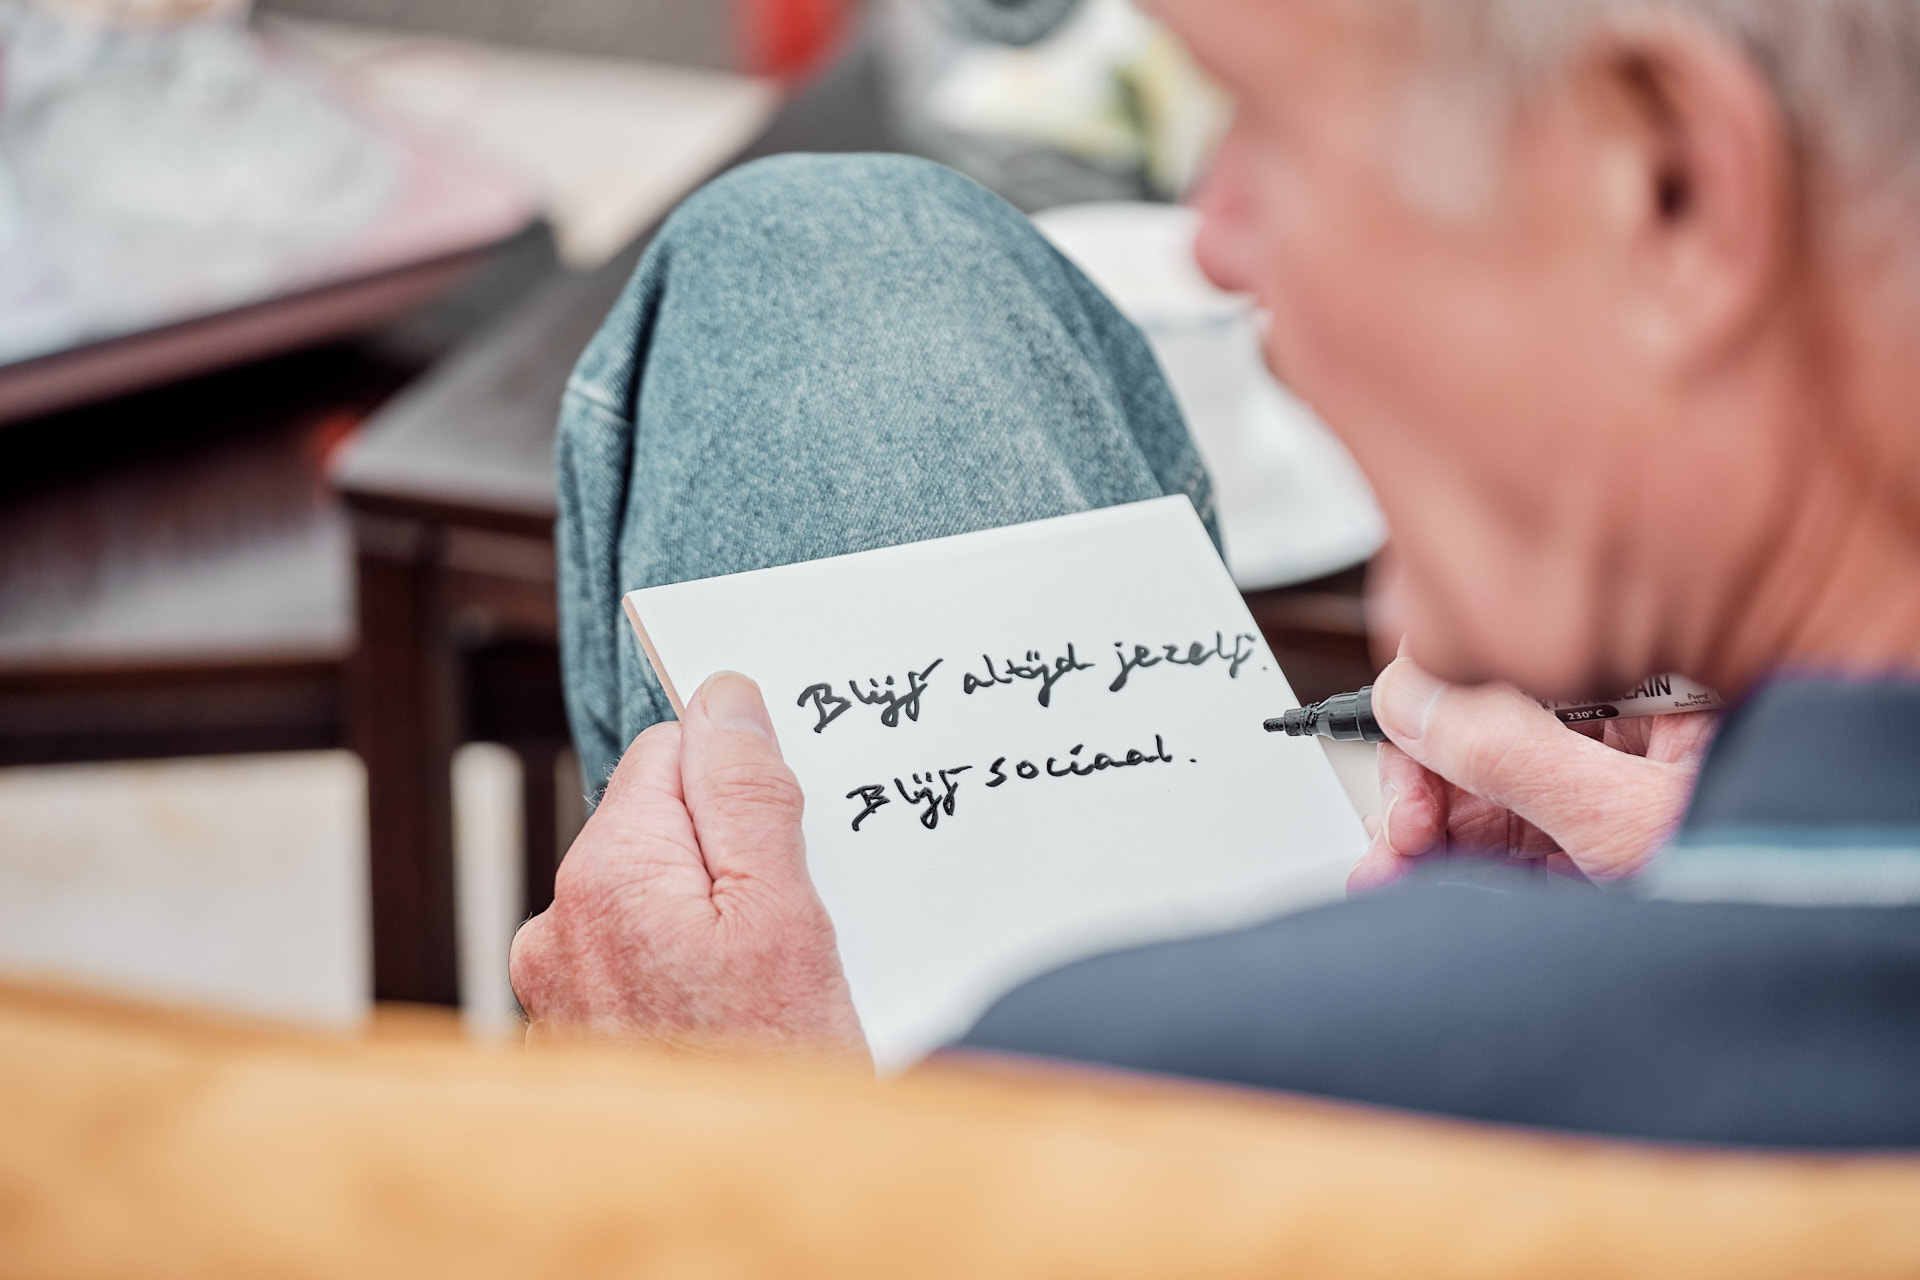 Blijf altijd jezelf.
Blijf sociaal.
230° C